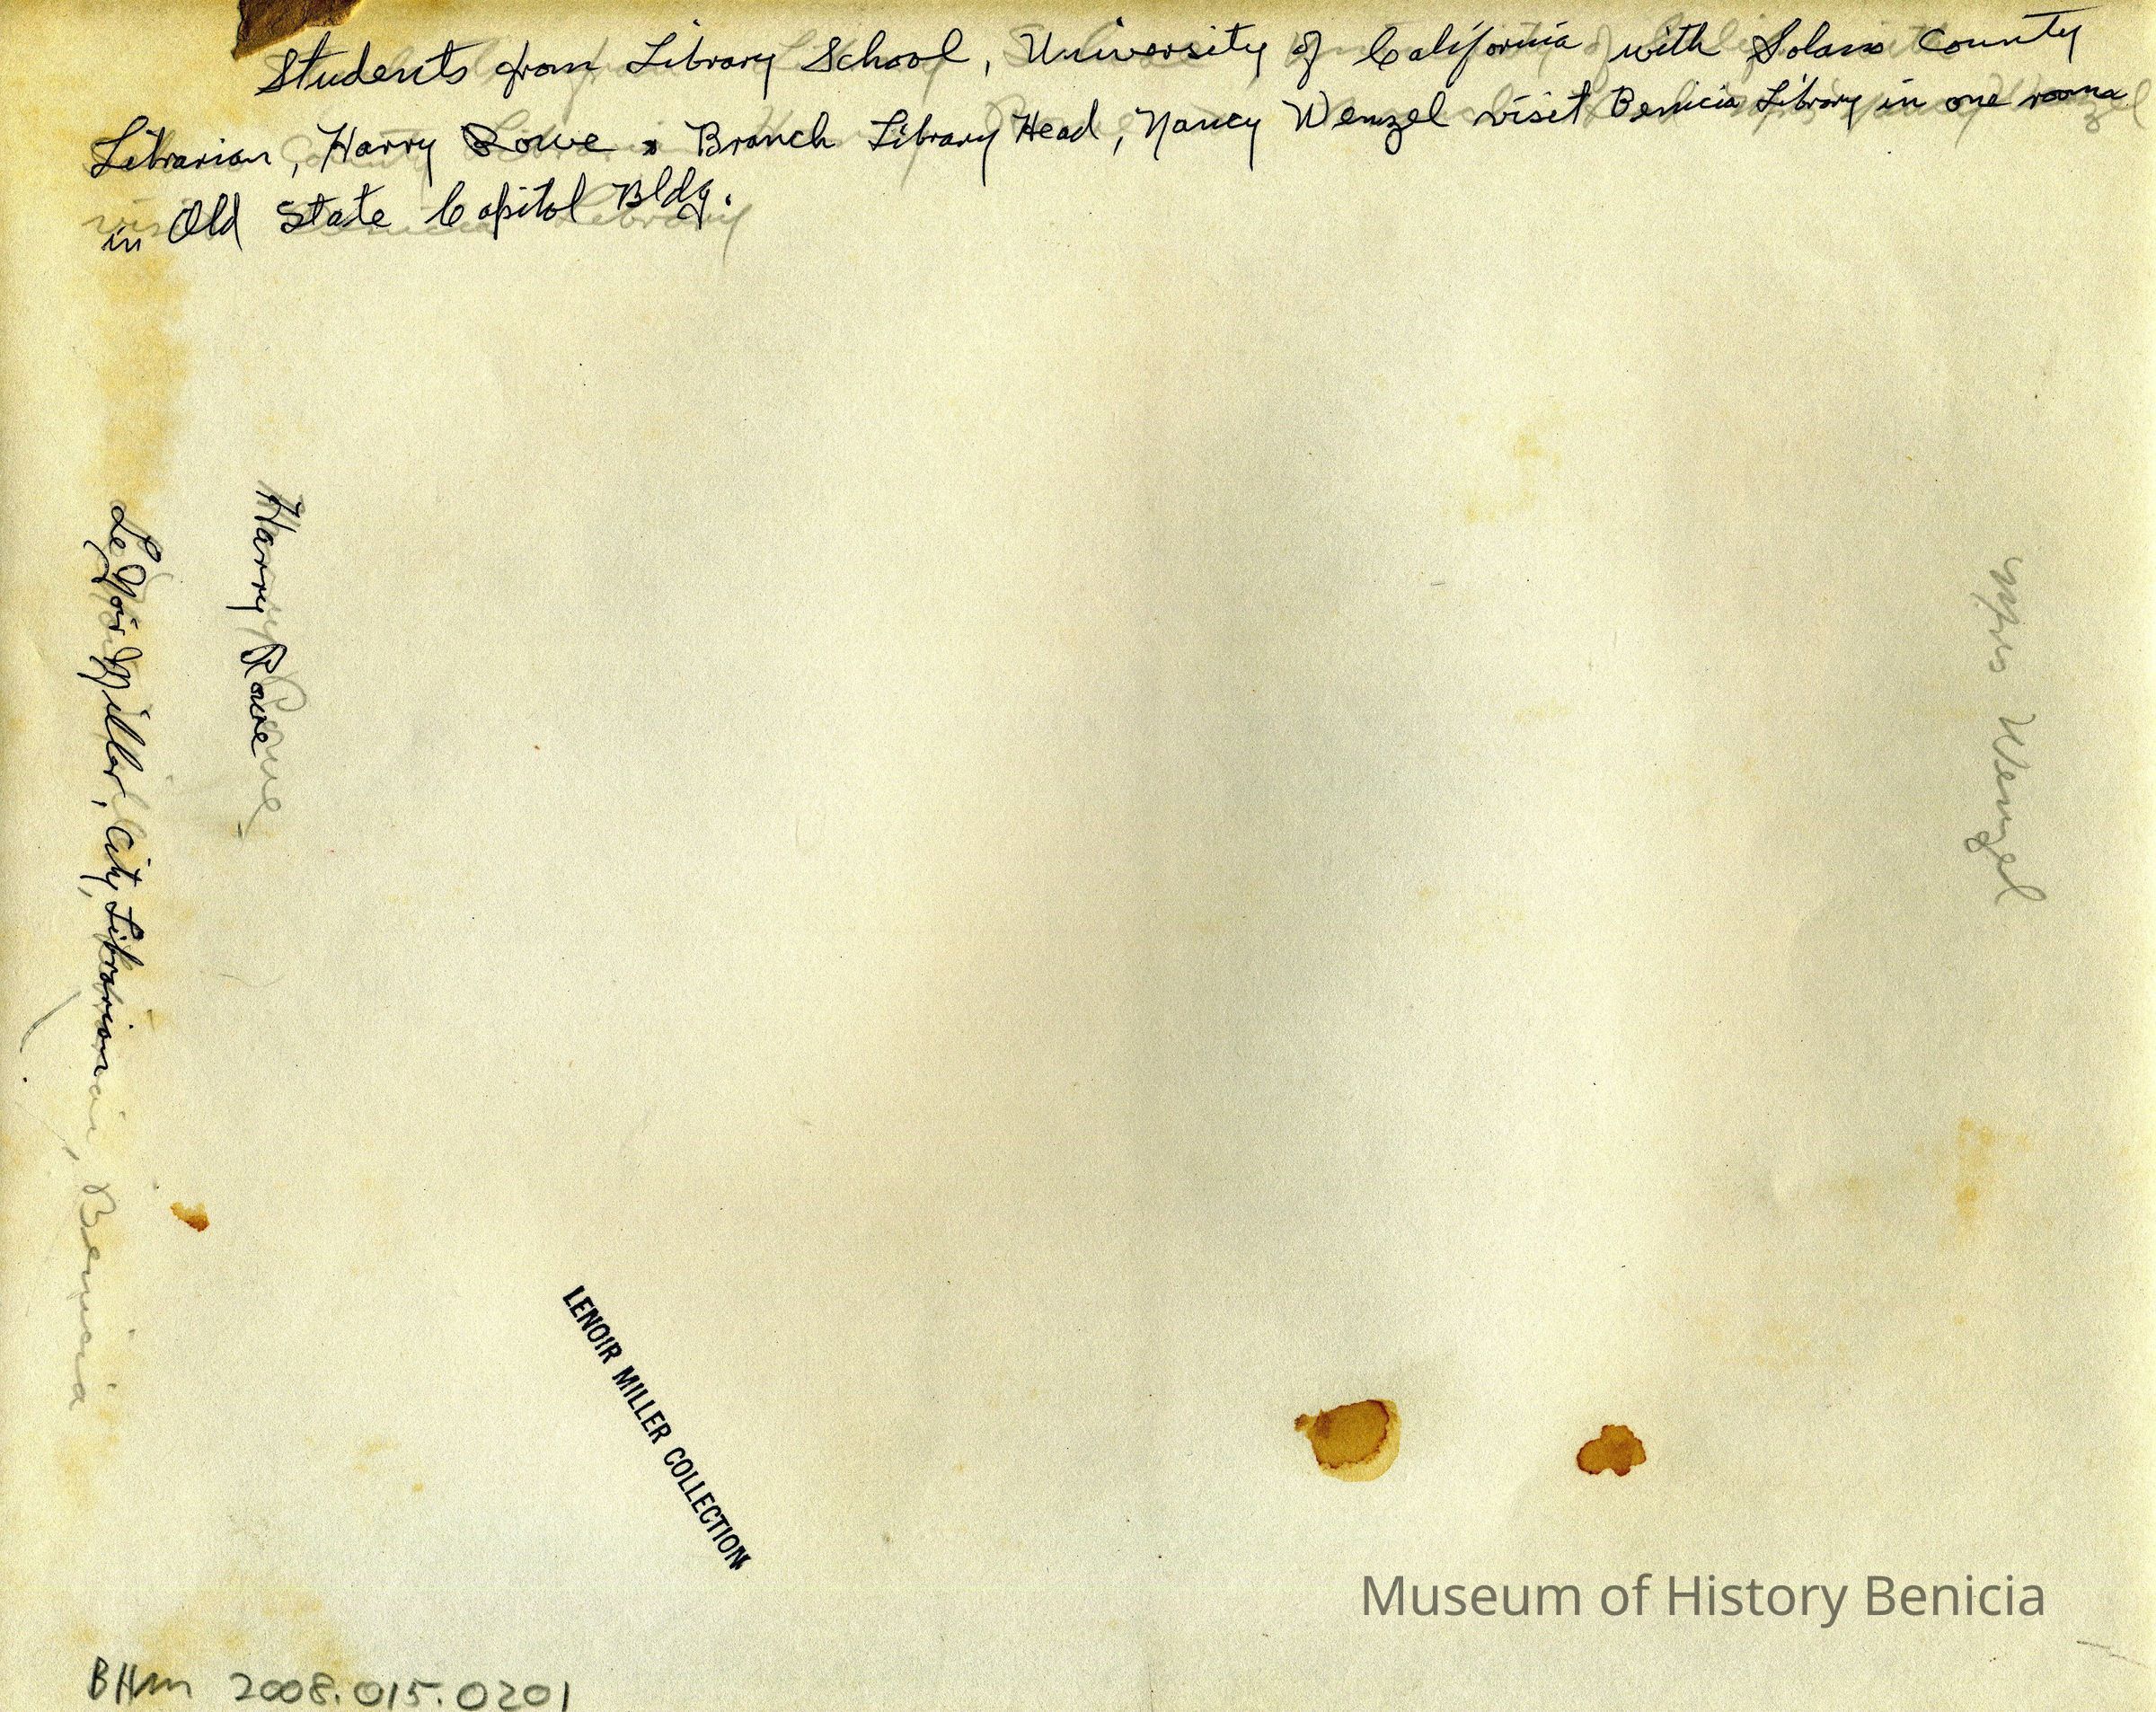 Students from Library School, University of California with Solano County
Librarian, Harry Rowe & Branch Library Head, Nancy Wenzel visit Benicia Library in one room
in Old State Capitol Bldg.
Harry Rowe
LeNoir Miller, City Librarian
Benicia
Mrs Wenzel
LENOIR MILLER COLLECTION
Museum of History Benicia
BHM 2008.015.0201